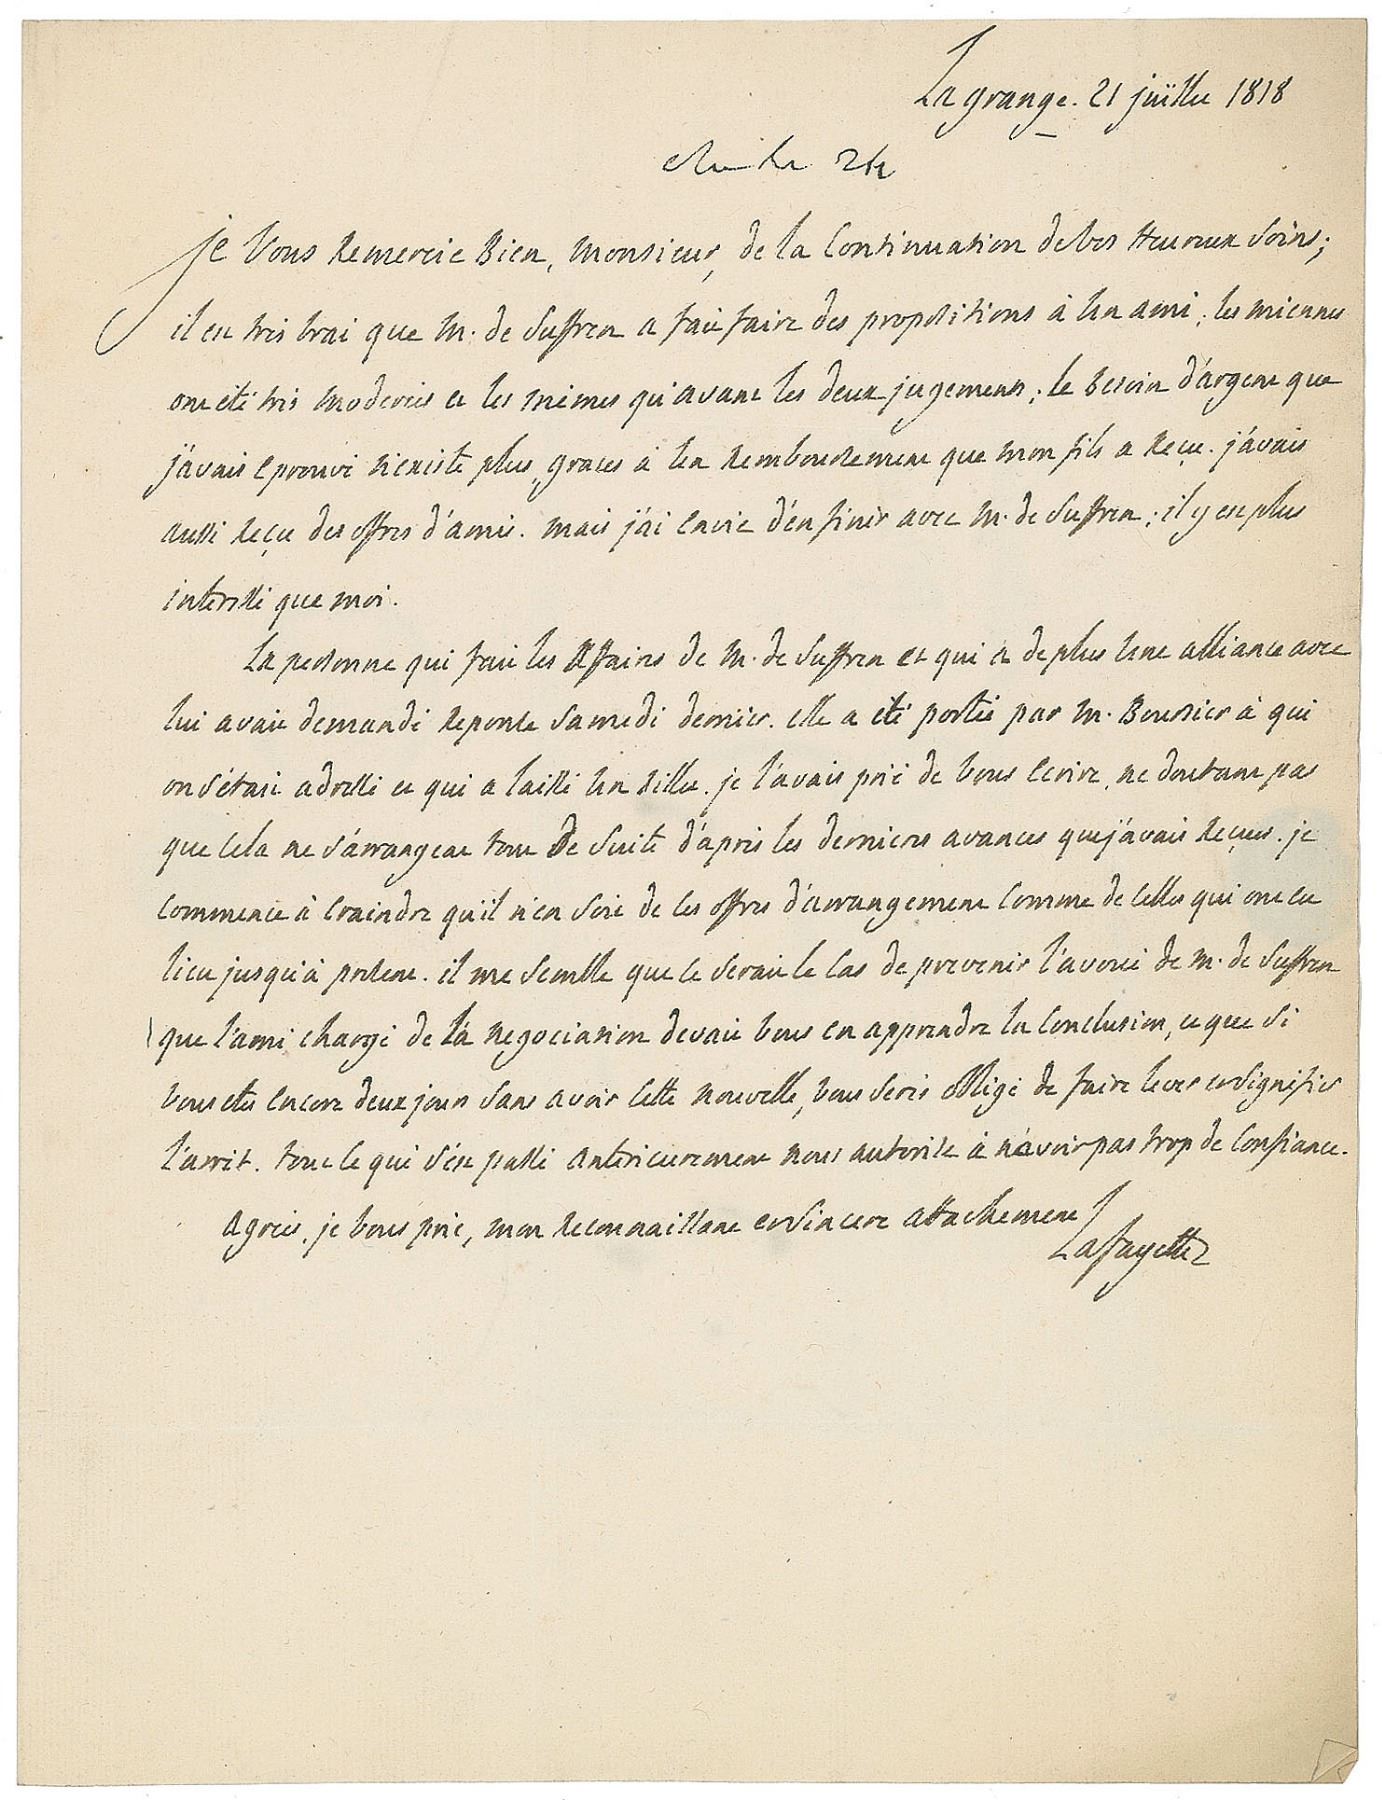 Lagrange. 21 juillet 1818
24
je vous remercie bien, monsieur, de la continuation de vos heureux soins;
il est très vrai que M. de Suffren a fait faire des propositions à un ami; les miennes
ont été très moderées et les mêmes qu'avant les deux jugemens; le besoin d'argent que
j'avais eprouvé n'existe plus, graces à un remboursement que mon fils a reçu. j'avais
aussi reçu des offres d'amis. mais j'ai envie d'en finir avec M. de Suffren; il y est plus
interessé que moi.
La personne qui fait les affaires de M. de Suffren et qui a de plus une alliance avec
lui avait demandé reponse samedi dernier. elle a été portée par M. Boursier à qui
on s'était adressé et qui a laissé un billet. je l'avais prié de vous ecrire, ne doutant pas
que cela ne s'arrangeat tout de suite d'après les dernieres avances que j'avais reçues. je
commence à craindre qu'il n'en soit de ces offres d'arrangement comme de celles qui ont eu
lieu jusqu'à present. il me semble que ce serait le cas de prevenir l'avoué de M. de Suffren
que l'ami chargé de la negociation devait vous en apprendre la conclusion, et que si
vous etes encore deux jours sans avoir cette nouvelle, vous serés obligé de faire lever et signifier
l'arrêt. tout ce qui s'est passé anterieurement nous autorise à n'avoir pas trop de confiance.
agrées, je vous prie, mon reconnaissant et sincere attachement
Lafayette